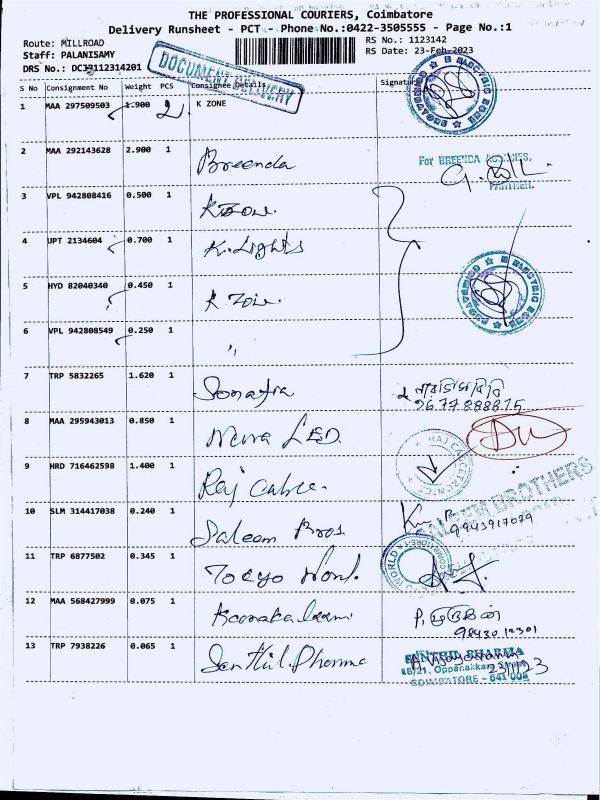 THE PROFESSIONAL COURIERS, Coimbatore
Delivery Runsheet - PCT - Phone No.:0422-3505555 - Page No.:1
Route: MILLROAD
RS No.: 1123142
Staff: PALANISAMY
RS Date: 23-Feb-2023
DOCUMENT DELIVERY
S No Consignment No Weight PCS Consignee Details Signature
1 MAA 297509503 1.900 2 K ZONE
2 MAA 292143628 2.900 1 Breenda
For BREENDA AGENCIES,
PARTNER.
3 VPL 942808416 0.500 1 K Zone.
4 UPT 2134604 0.700 1 K. Lights
5 HYD 82040340 0.450 1 K Zone.
6 VPL 942808549 0.250 1 "
7 TRP 5832265 1.620 1
96 77 888875
8 MAA 295943013 0.850 1 LED.
9 HRD 716462598 1.400 1 Raj Cable.
10 SLM 314417038 0.240 1 Saleem Bros.
SALEEM BROTHERS
9943917079
11 TRP 6877502 0.345 1 Tokyo
12 MAA 568427999 0.075 1
98430 12301
13 TRP 7938226 0.065 1 Senthil Pharma
SENTHIL PHARMA
Oppanakkara Street
COIMBATORE - 641 001